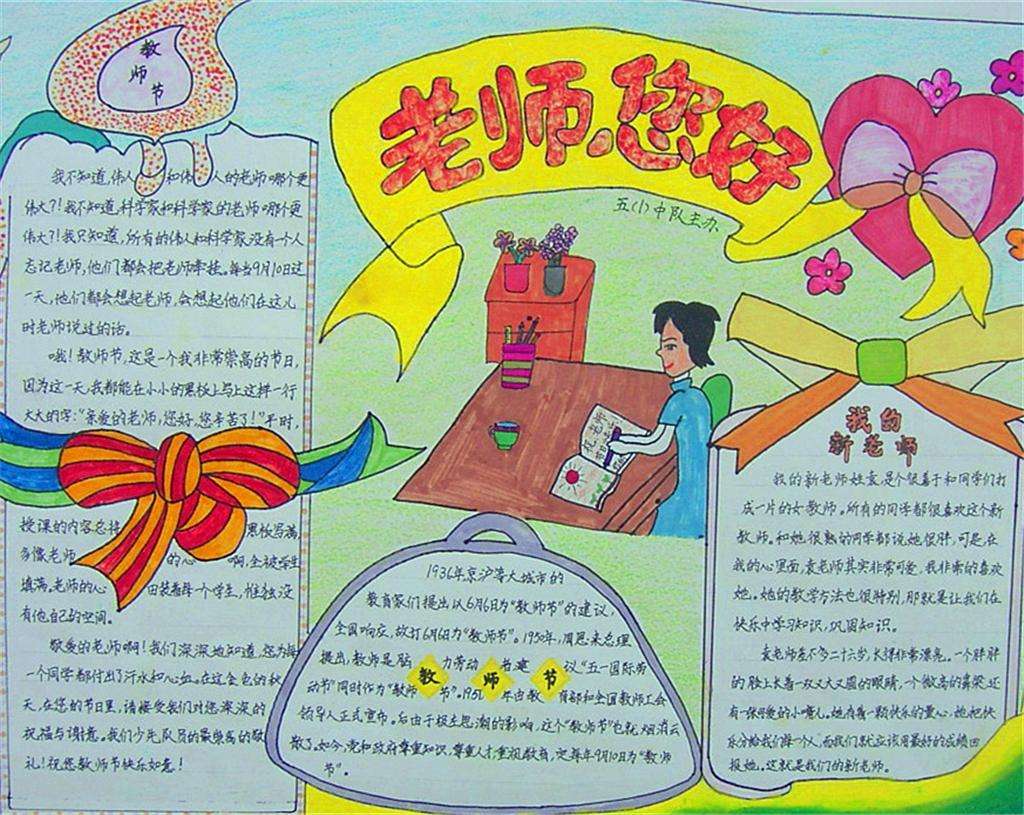 老师.您好
五(1)中队主办
教
师
节
我不知道,伟人和伟人的老师哪个更
伟大?!我不知道,科学家和科学家的老师哪个更
伟大?!我只知道,所有的伟人和科学家没有一个人
忘记老师,他们都会把老师牵挂。每当9月10日这
一天,他们都会想起老师,会想起他们在这儿
时老师说过的话。
哦!教师节,这是一个我非常崇高的节日,
因为这一天,我都能在小小的黑板上写上这样一行
大大的字:“亲爱的老师,您好,您辛苦了!”平时,
授课的内容总将黑板写满,
多像老师的心啊,全被学生
填满。老师的心由装着每一个学生,惟独没
有他自己的空间。
敬爱的老师啊!我们深深地知道,您为每
一个同学都付出了汗水和心血。在这金色的秋
天,在您的节日里,请接受我们对您深深的
祝福与谢意。我们少先队员的最崇高的敬
礼!祝您教师节快乐如意!
祝老师
节日
1936年京沪等大城市的
教育家们提出以6月6日为“教师节”的建议,
全国响应,故订6月6日为“教师节”。1950年,周恩来总理
提出,教师是脑力劳动者,建议“五一国际劳
动节”同时作为“教师节”。1951年由教育部和全国教师工会
领导人正式宣布。后由于极左思潮的影响,这个“教师节”也就烟消云
散了。如今,党和政府尊重知识,尊重人才,重视教育,定每年9月10日为“教师
节”。
教 师 节
我的
新老师
我的新老师姓袁,是个很善于和同学们打
成一片的女教师。所有的同学都很喜欢这个新
教师。和她很熟的同学都说她很胖,可是,在
我的心里面,袁老师其实非常可爱,我非常的喜欢
她。她的教学方法也很特别,那就是让我们在
快乐中学习知识,巩固知识。
袁老师差不多二十六岁,长得非常漂亮。一个胖胖
的脸上长着一双又大又圆的眼睛,一个微高的鼻梁,还
有一张可爱的小嘴儿。她有着一颗快乐的童心,她把快
乐分给我们每一个人,而我们就应该用最好的成绩回
报她。这就是我们的新老师。